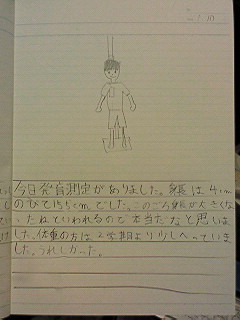 今日発育測定がありました。身長は4cm
のびて155cmでした。このごろ身長が大きくな
たねといわれるので本当だなと思いま
した。体重の方は2学期より少しへっていま
した。うれしかった。